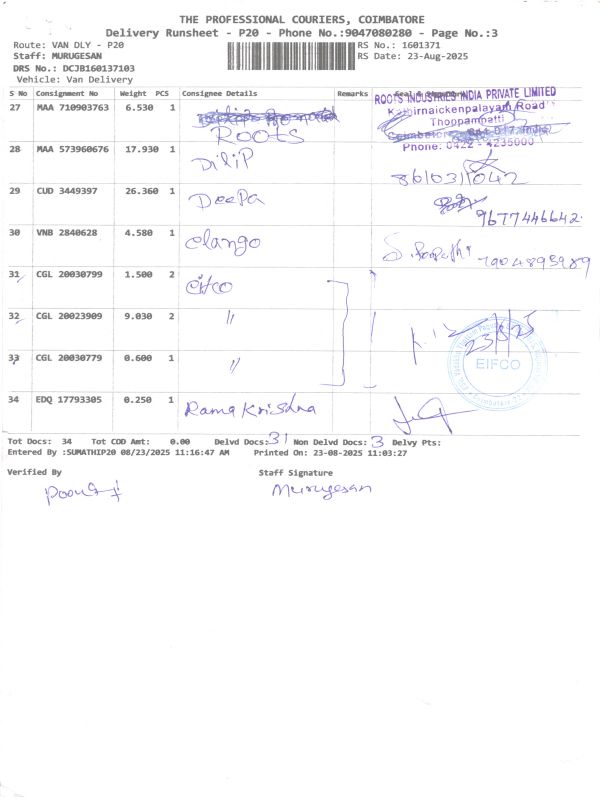 THE PROFESSIONAL COURIERS, COIMBATORE
Delivery Runsheet - P20 - Phone No.:9047080280 - Page No.:3
Route: VAN DLY - P20
Staff: MURUGESAN
DRS No.: DCJB160137103
Vehicle: Van Delivery
RS No.: 1601371
RS Date: 23-Aug-2025
S No Consignment No Weight PCS Consignee Details Remarks
27 MAA 710903763 6.530 1 Roots
ROOTS INDUSTRIES INDIA PRIVATE LIMITED
Kathirnaickenpalayam Road
Thoppampatti
Phone: 0422 - 4235000
28 MAA 573960676 17.930 1 Dilip
29 CUD 3449397 26.360 1 Deepa 9677446642
30 VNB 2840628 4.580 1 elango 7904893989
31 CGL 20030799 1.500 2
32 CGL 20023909 9.030 2 "
33 CGL 20030779 0.600 1 "
EIFCO
34 EDQ 17793305 0.250 1 Rama Krishna
Tot Docs: 34 Tot COD Amt: 0.00 Delvd Docs: 31 Non Delvd Docs: 3 Delvy Pts:
Entered By :SUMATHIP20 08/23/2025 11:16:47 AM Printed On: 23-08-2025 11:03:27
Verified By Staff Signature
Murugesan